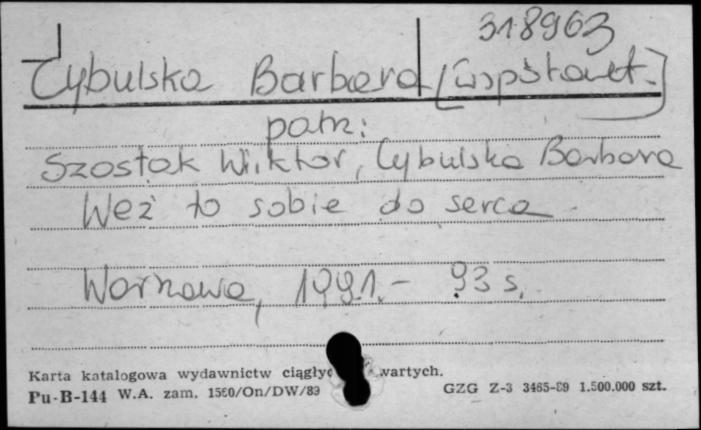 318963
Cybulska Barbara [współaut.]
patrz:
Szostak Wiktor, Cybulska Barbara
Weź to sobie do serca
Warszawa, 1991.- 93 s.
Karta katalogowa wydawnictw ciągłyc wartych.
Pu-B-144 W.A. zam. 1560/On/DW/89 GZG Z-3 3465-89 1.500.000 szt.